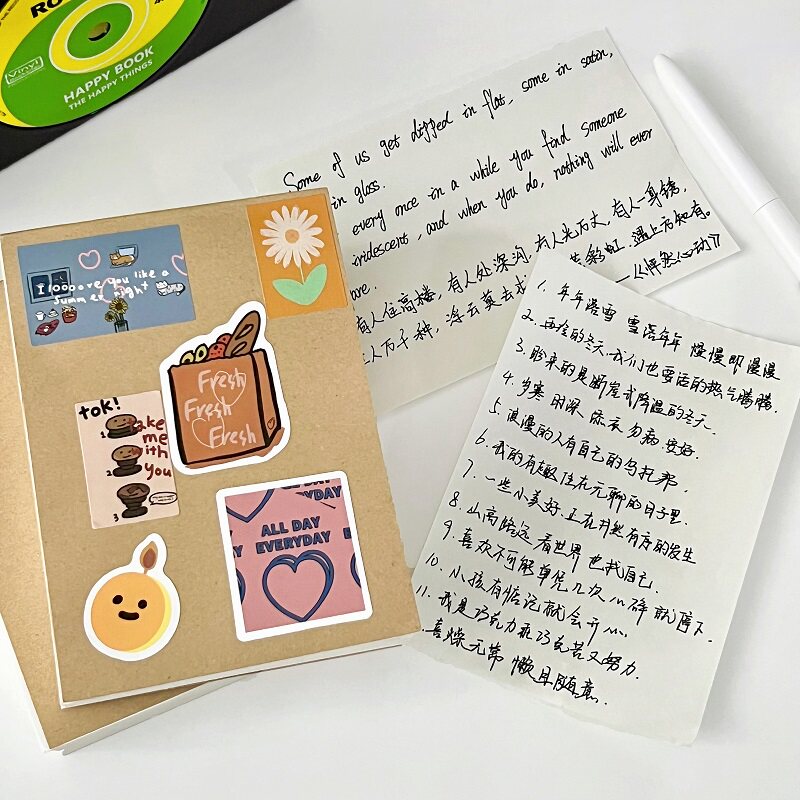 RO
Vinyl
HAPPY BOOK
THE HAPPY THINGS
Some of us get dipped in flat, some in satin,
in gloss.
every once in a while you find someone
iridescent, and when you do, nothing will ever
有人住高楼，有人处深沟，有人光万丈，有人一身锈，
人万千种，浮云莫去求，彩虹，遇上方知有。
——《怦然心动》
I 1000ove you like a
summer night
tok!
ake
me
ith
you
1
2
3
Fresh
Fresh
Fresh
ALL DAY
EVERYDAY
1. 年年落雪 雪落年年 慢慢即漫漫
2. 再冷的冬天,我们也要活的热气腾腾.
3. 盼来的是断崖式降温的冬天.
4. 岁寒 日深 添衣 勿病 安好.
5. 浪漫的人有自己的乌托邦.
6. 我的有趣住在无聊的日子里.
7. 一些小美好,正在井然有序的发生
8. 山高路远 看世界 也找自己.
9. 喜欢不可能单凭几次心碎就停下.
10. 小孩有惦记就会开心.
11. 我是巧克力 乖巧克苦又努力.
喜燥无常 懒且随意.